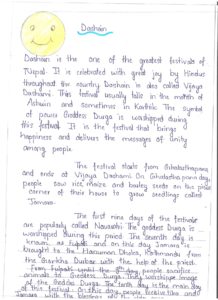 Dashain
Dashain is the one of the greatest festivals of
Nepal. It is celebrated with great joy by Hindus
throughout the country. Dashain is also called Vijaya
Dashami. This festival usually take in the month of
Ashwin and sometimes in Kartik. The symbol
of power Goddess Durga is worshipped during
this festival. It is the festival that brings
happiness and delivers the messages of unity
among people.
The festival starts from Ghatasthapana
and ends at Vijaya Dashami. On Ghatastha pana day,
people sow rice, maize and barley seeds on the
corner of their house to grow seedlings called
"Jamara.
The first nine days of the festival
are popularly called Navarathi. The goddess Durga is
worshipped during this period. The seventh day is
known as Fulpati and on this day Jamara is
brought to the Hanuman Dhoka, Kathmandu from
the Gorkha Durbar with the help of the priest.
From Fulpati until the 9th day, people sacrifice
animals to Goddess Durga. They worship image
of the Goddess Durga. The tenth day is the main day
of this festival. On this day people receive tika and
Jamara with the blessings